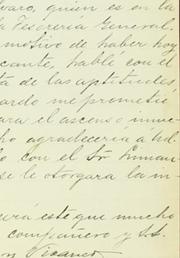 varo, quien es en la
la Tesorería General,
motivo de haber hoy
cante, hablé con el
ta de las aptitudes
ardo me prometió
para el ascenso mu
cho agradecería a Ud.
o con el Sr.
se le otorgara la m

este que mucho
compañero y S.S.